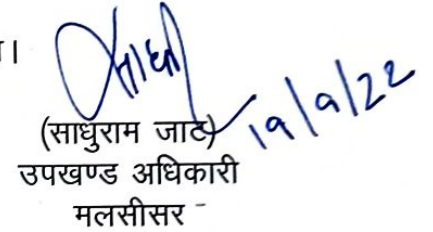 ।
19/9/22
(साधुराम जाट)
उपखण्ड अधिकारी
मलसीसर